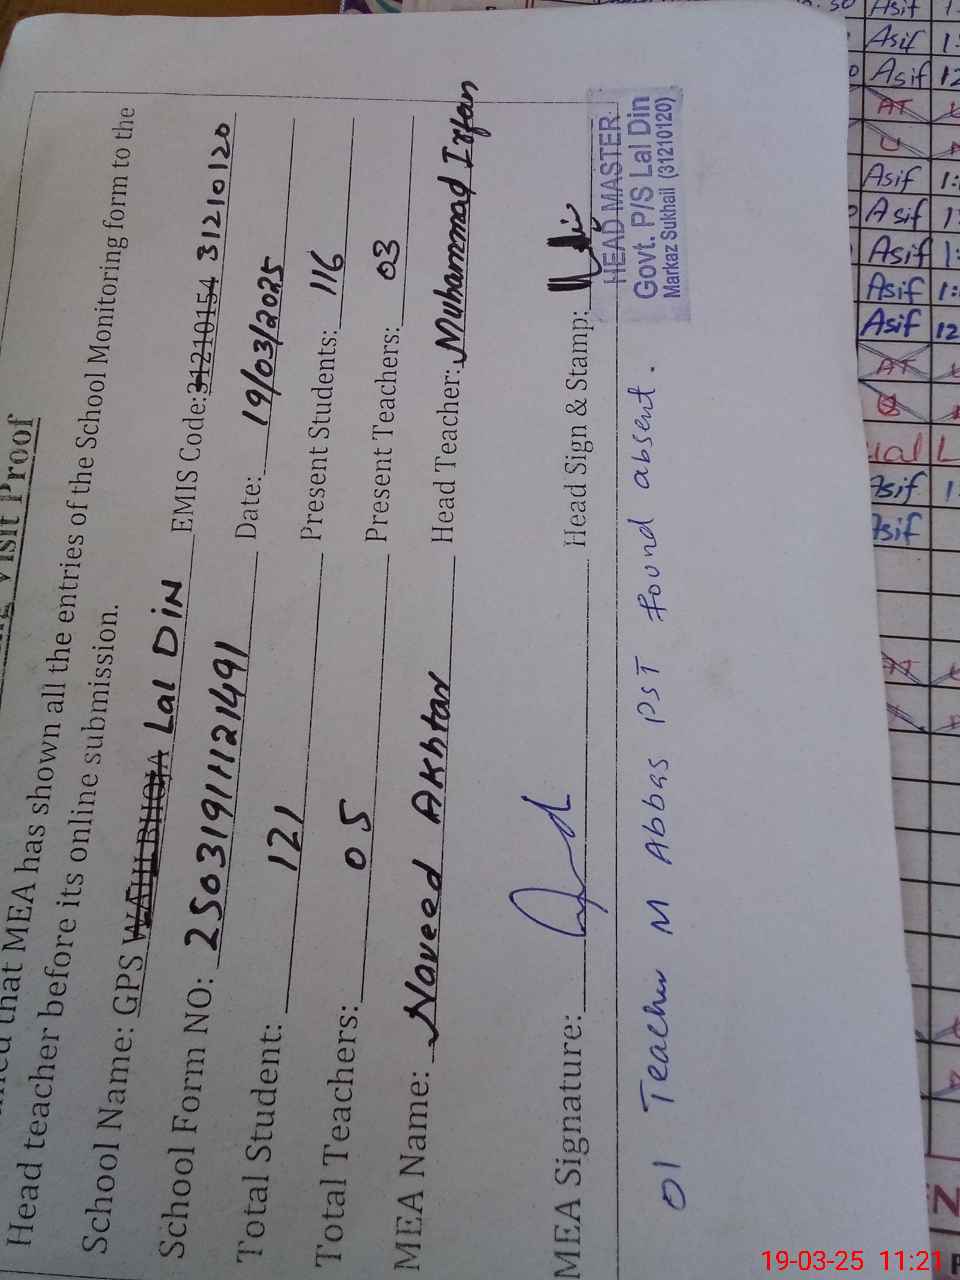 Visit Proof
that MEA has shown all the entries of the School Monitoring form to the
Head teacher before its online submission.
School Name: GPS Lal Din EMIS Code: 31210154 31210120
School Form NO: 250319111121491 Date: 19/03/2025
Total Student: 121 Present Students: 116
Total Teachers: 05 Present Teachers: 03
MEA Name: Naveed Akhtar Head Teacher: Muhammad Irfan
MEA Signature: Head Sign & Stamp:
HEAD MASTER
Govt. P/S Lal Din
Markaz Sukhail (31210120)
01 Teacher M Abbas PST found absent.
Asif
Asif
Asif 12
AT
Asif
Asif
Asif
Asif
Asif 12
AT
Asif
Asif
19-03-25 11:21